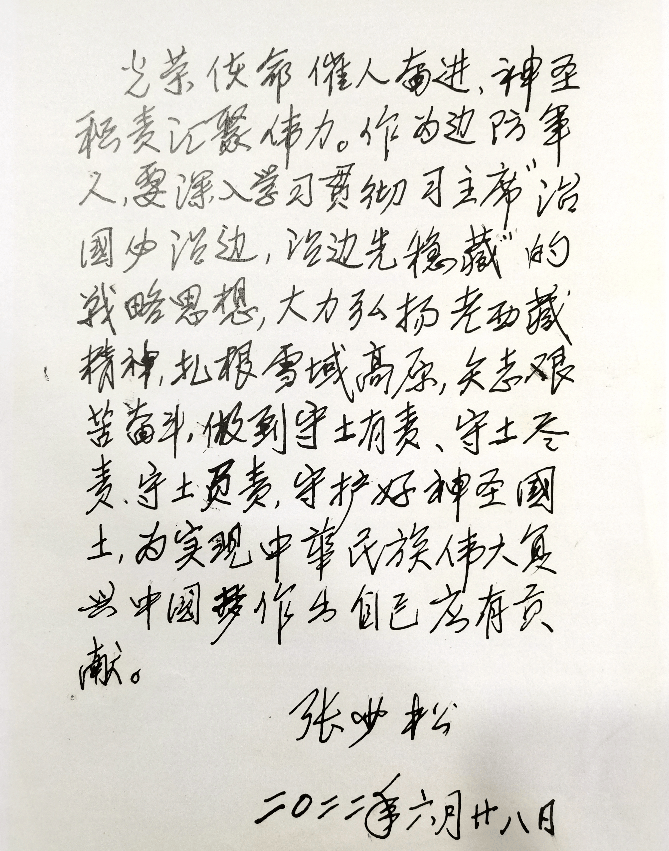 光荣使命催人奋进、神圣
职责汇聚伟力。作为边防军
人，要深入学习贯彻习主席“治
國必治边，治边先稳藏”的
战略思想，大力弘扬老西藏
精神，扎根雪域高原，矢志艰
苦奋斗，做到守土有责、守土尽
责、守土负责，守护好神圣國
土，为实现中華民族伟大复
兴中国梦作出自己应有贡
献。
张 松
二〇二二年六月廿八日